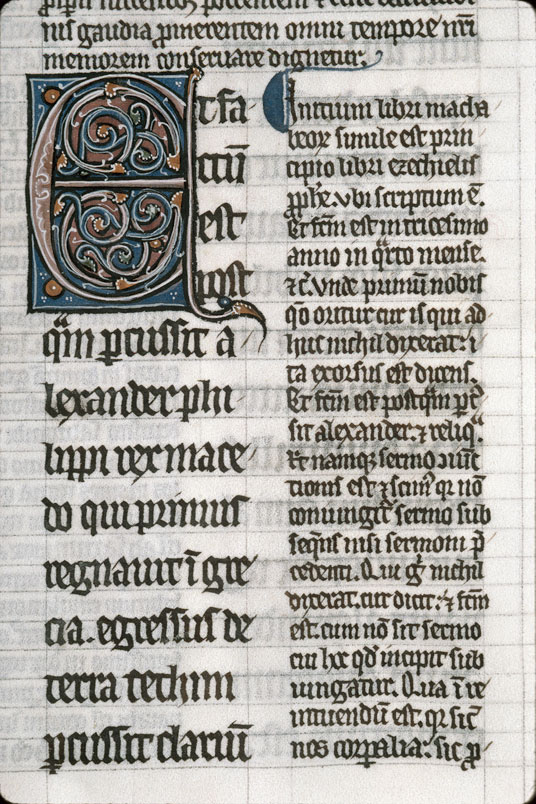 nis gaudia promerentem omni tempore nr̄i
memorem conseruare dignetur.
Et fa
ctū
est
post
qͣm ꝑcussit a
lexander phi
lippi rex mace
do qui primus
regnauit ī gre
cia. egressus de
terra cethim
ꝑcussit dariū
Initium libri macha
beoꝝ simile est prin
cipio libri ezechielis
ꝓph̄e. vbi scriptum ē.
Et fc̄m est in tricesimo
anno in qͣrto mense.
⁊c̄. Vnde primū nobis
qō oritur cur is qui ad
huc nichil dixerat: i
ta exorsus est dicens.
Et fc̄m est postqͣm ꝑc̄
sit alexander. ⁊ reliqͣ.
Et namqꝫ sermo ↄiūc
tionis est. ⁊ scimꝰ qꝛ nō
coniungit̄ sermo sub
seqn̄s nisi sermoni p̄
cedenti. Qui gͦ nichil
dixerat. cur dicit: ⁊ fc̄m
est. cum nō sit sermo
cui hoc qd̄ incipit sub
iungatur. Qua ī re
intuendū est. qꝛ sic̄
nos corpalia: sic ꝓ